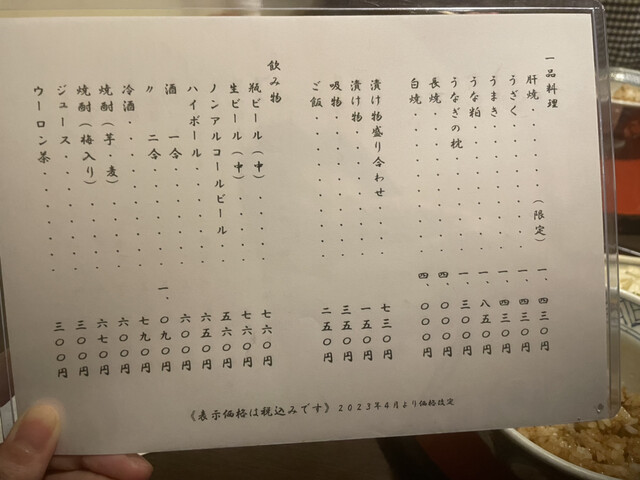 一品料理
肝焼・・・・・(限定)一、四三〇円
うざく・・・・・・・・一、四三〇円
うまき・・・・・・・・一、四三〇円
うな粕・・・・・・・・一、八五〇円
うなぎの枕・・・・・・一、三〇〇円
長焼・・・・・・・・・四、〇〇〇円
白焼・・・・・・・・・四、〇〇〇円
漬け物盛り合わせ・・・七三〇円
漬け物・・・・・・・・一五〇円
吸物・・・・・・・・・三五〇円
ご飯・・・・・・・・・二五〇円
飲み物
瓶ビール(中)・・・・七六〇円
生ビール(中)・・・・七六〇円
ノンアルコールビール・・五六〇円
ハイボール・・・・・・六五〇円
酒 一合・・・・・・・六〇〇円
〃 二合・・・・・・・一、〇九〇円
冷酒・・・・・・・・・七九〇円
焼酎(芋・麦)・・・・六〇〇円
焼酎(梅入り)・・・・六七〇円
ジュース・・・・・・・三〇〇円
ウーロン茶・・・・・・三〇〇円
《表示価格は税込みです》2023年4月より価格改定